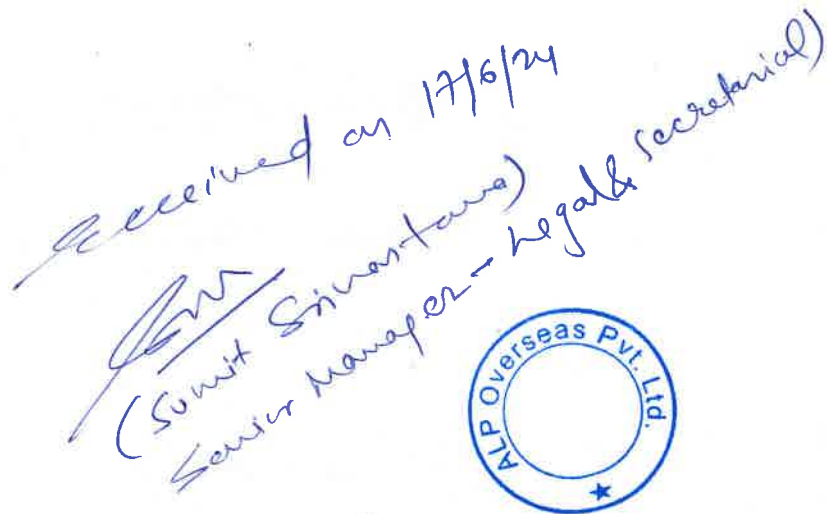 Received on 17/6/24
(Sumit Srivastava)
Senior Manager - Legal & Secretarial)
ALP Overseas Pvt. Ltd.